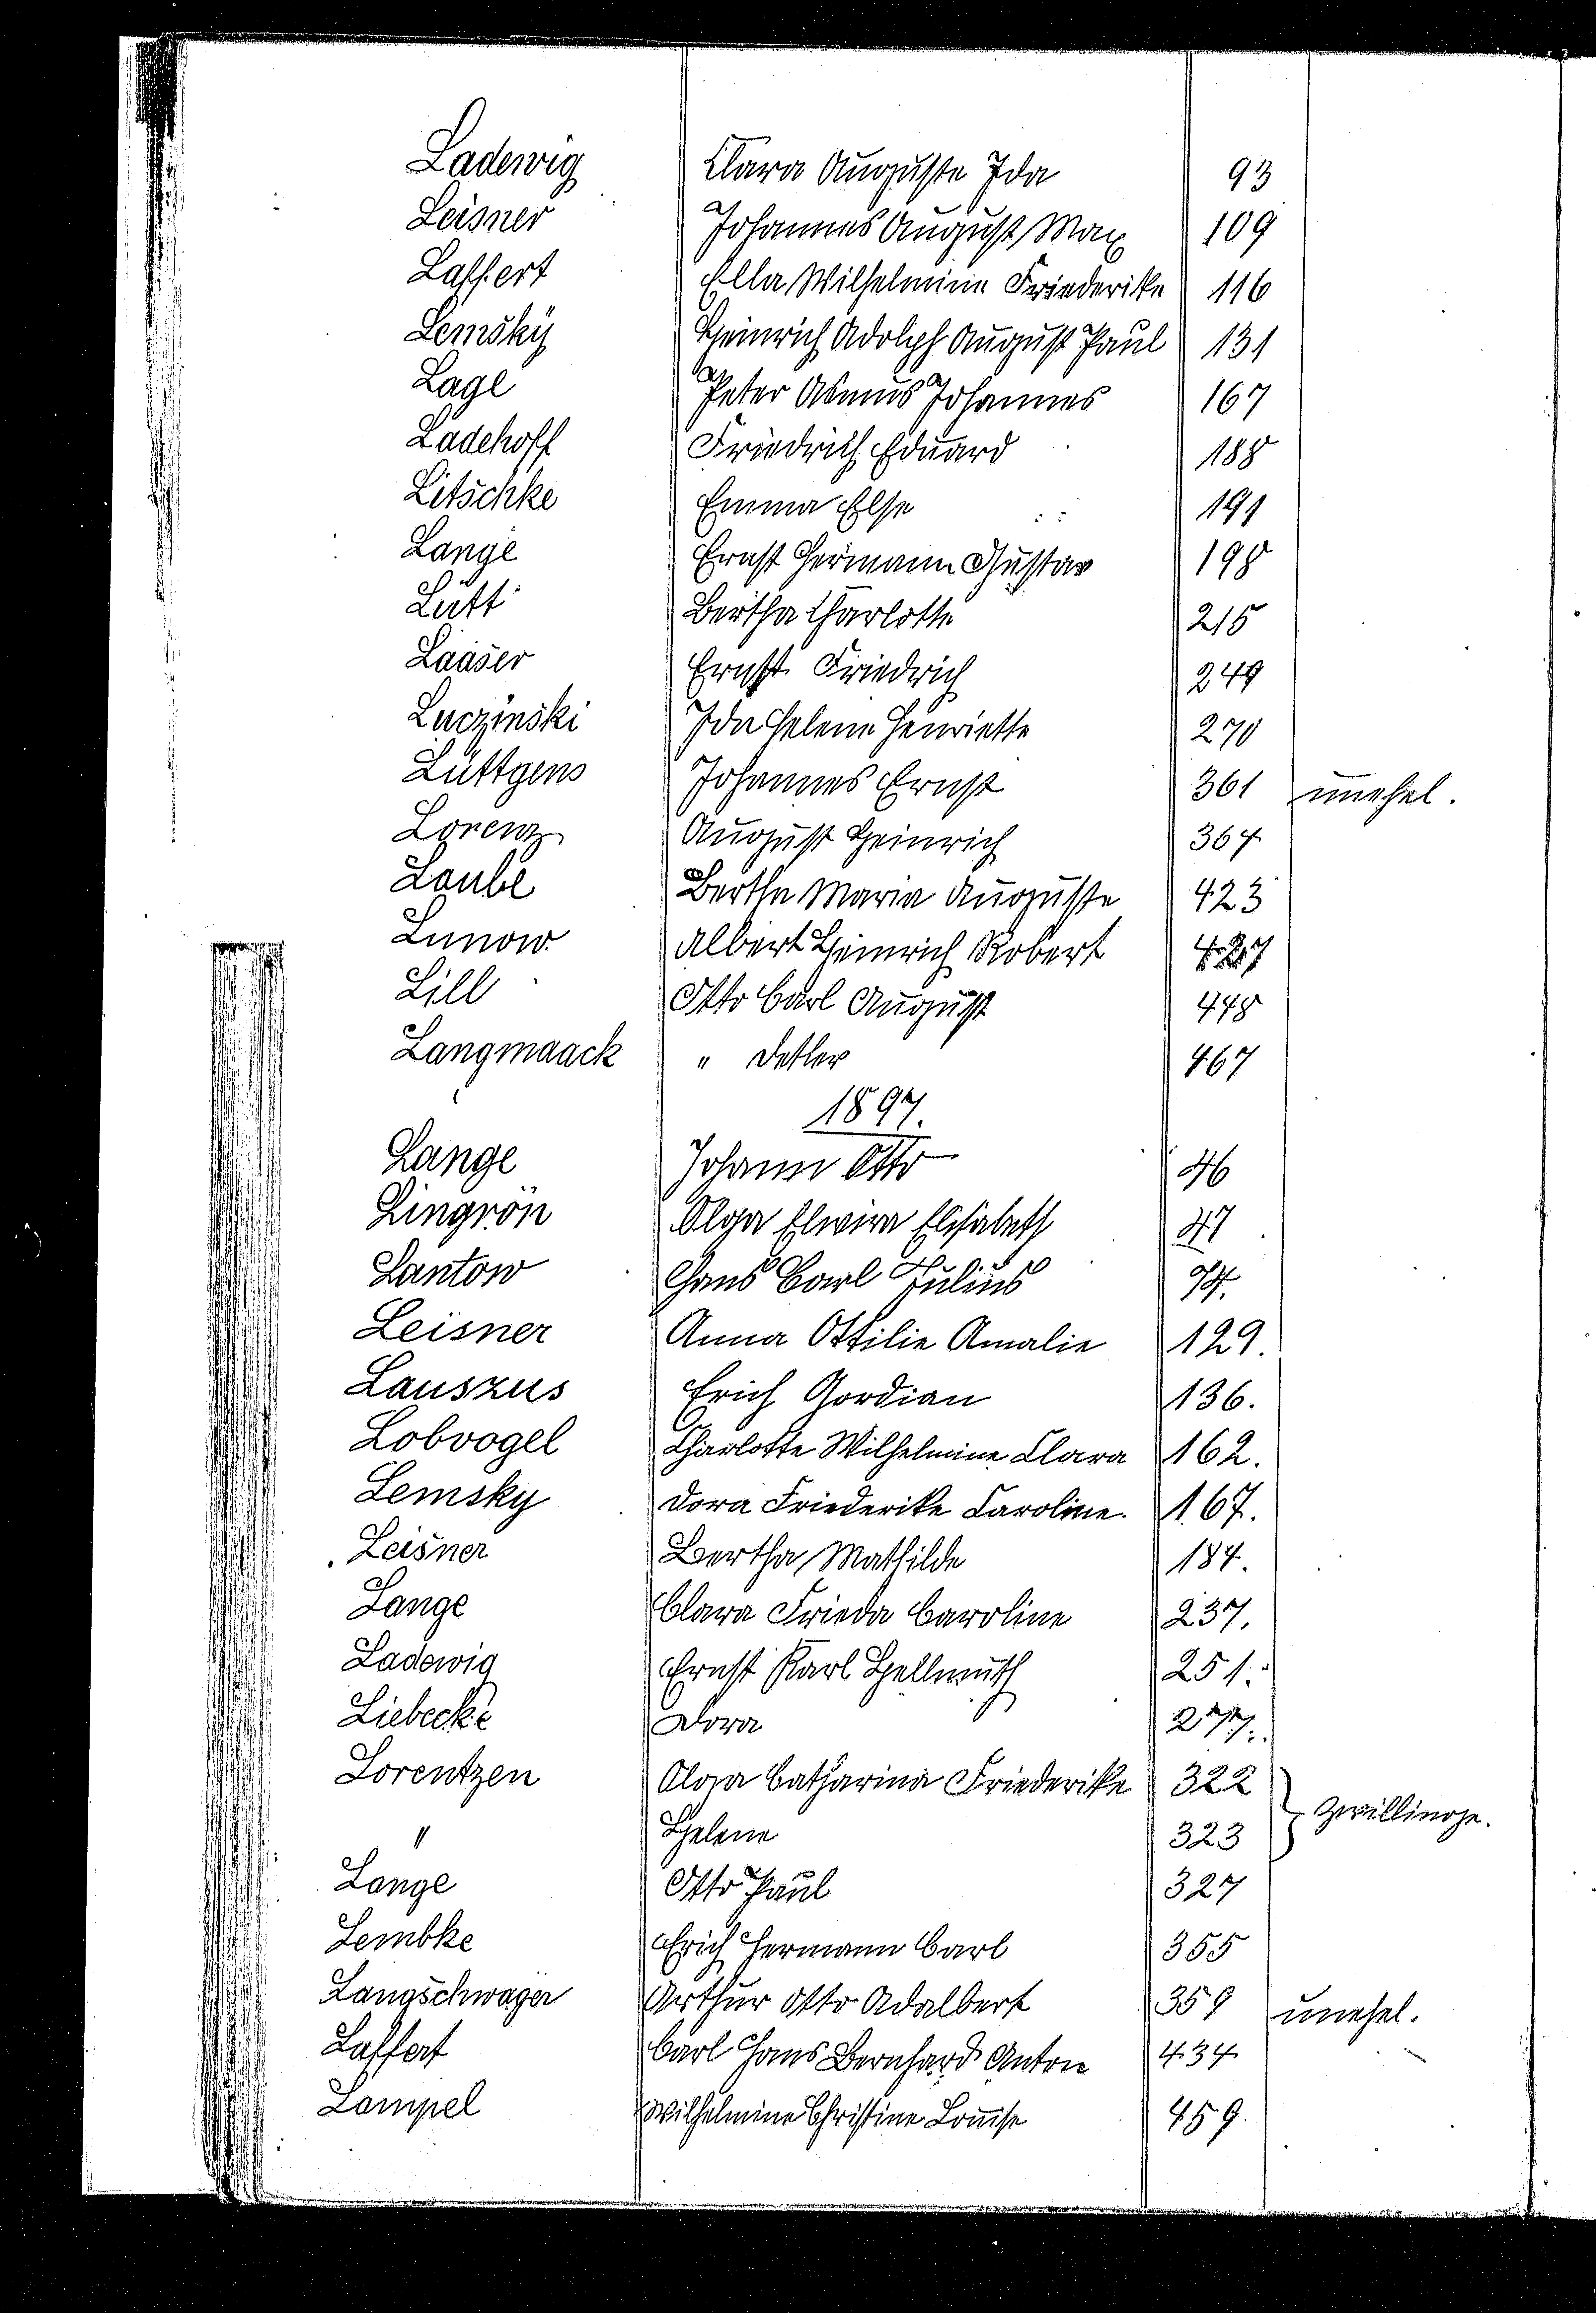 Ladewig Clara Auguste Ida 93
Leisner Johannes August Max 109
Laffert Ella Wilhelmine Friederike 116
Lemsky Heinrich Adolph August Paul 131
Lage Peter Asmus Johannes 167
Ladehoff Friedrich Eduard 188
Litschke Emma Else 191
Lange Ernst Hermann Gustav 198
Lütt Bertha Charlotte 215
Laaser Ernst Friedrich 249
Luczinski Ida Helene Henriette 270
Lüttgens Johannes Ernst 361 unehel.
Lorenz August Heinrich 364
Laube Bertha Maria Auguste 423
Lunow Albert Heinrich Robert 427
Lill Otto Carl August 448
Langmaack " Detlev 467
1897.
Lange Johann Otto 46
Lingrön Olga Elwira Elisabeth 47
Lantow Hans Carl Julius 74.
Leisner Anna Ottilie Amalie 129.
Lauszus Erich Gordian 136.
Lobvogel Charlotte Wilhelmine Clara 162.
Lemsky Dora Friederike Caroline. 167.
Leisner Bertha Mathilde 184.
Lange Clara Frieda Caroline 237.
Ladewig Ernst Karl Hellmuth 251.
Liebecke Dora 277.
Lorentzen Olga Catharina Friederike 322
} Zwillinge.
" Helene 323
Lange Otto Paul 327
Lembke Erich Hermann Carl 355
Langschwager Arthur Otto Adalbert 359 unehel.
Laffert Carl Hans Bernhard Anton 434
Lampel Wilhelmine Christine Louise 459.